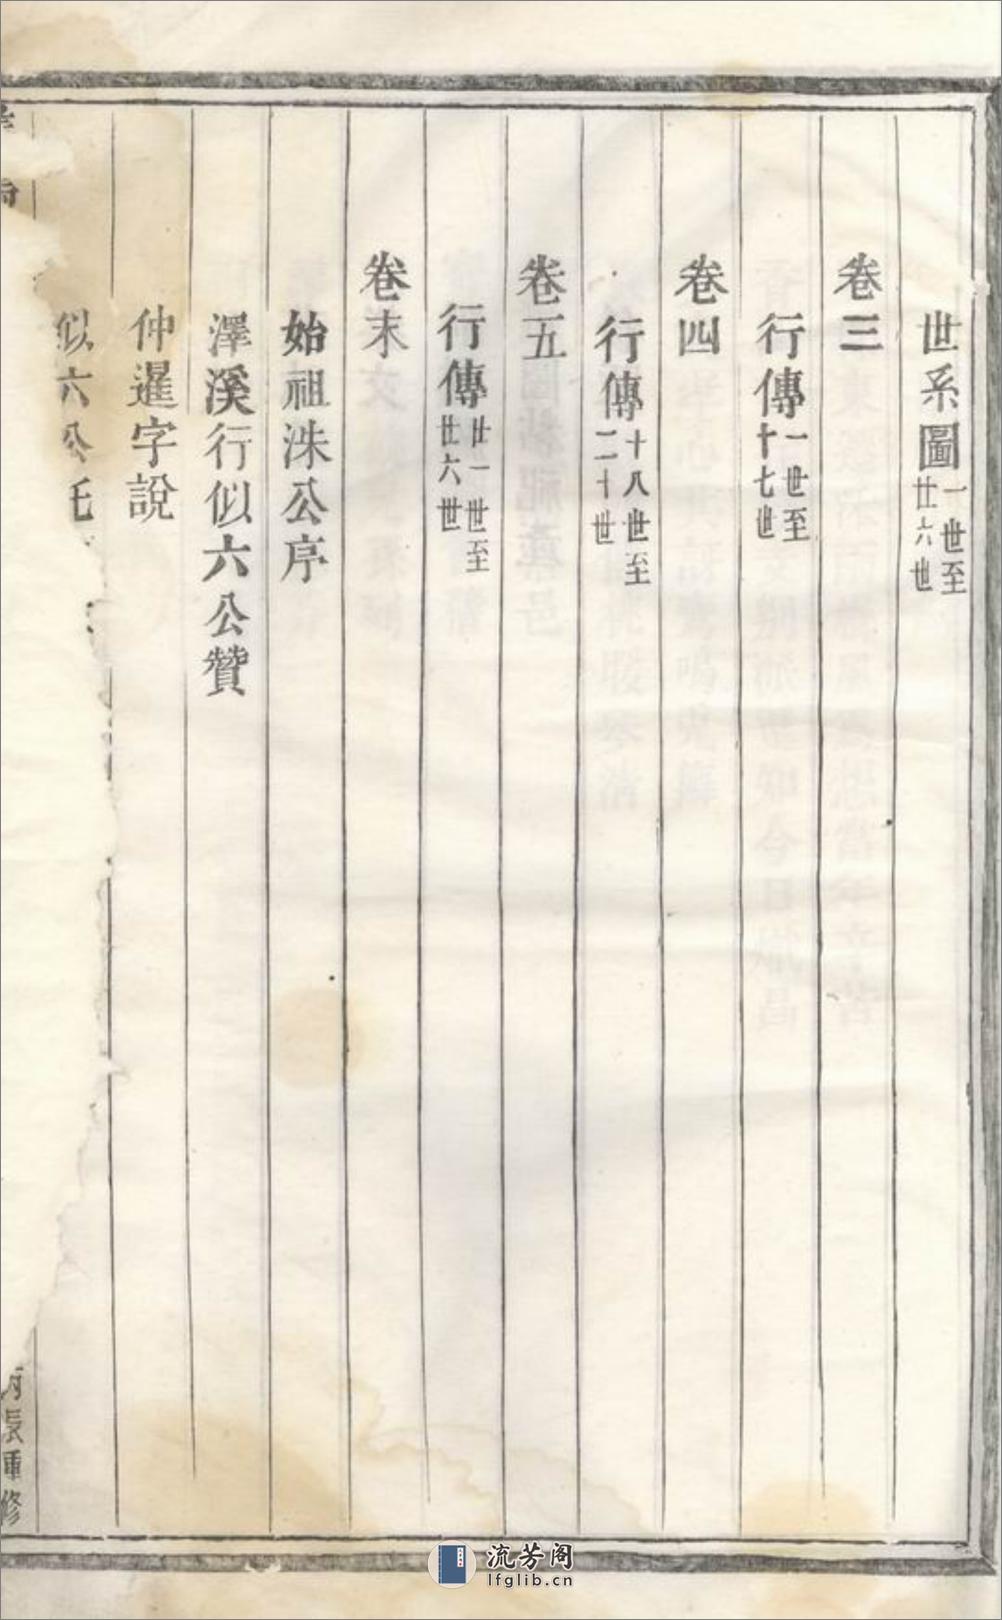 世系圖一世至廿六世
卷三
行傳一世至十七世
卷四
行傳十八世至二十世
卷五
行傳廿一世至廿六世
卷末
始祖洙公序
澤溪行似六公贊
仲暹字說
似六公
辰重修
流芳阁
lfglib.cn